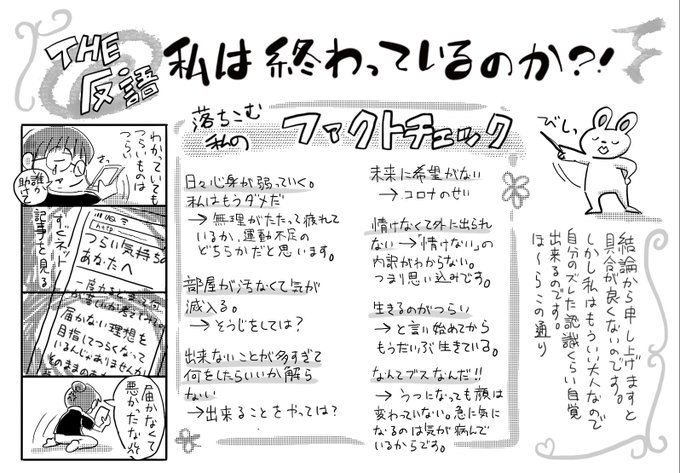 THE
反語
私は終わっているのか?!
落ちこむ
私の
ファクトチェック
わかっていても
つらいものは
つらい
誰か
助けて
すぐネットで
記事を見る
つらい気持
あなたへ
届かない理想を
目指してつらくなって
いるんじゃありませんか
届かなくて
悪かったな
日々心身が弱っていく。
私はもうダメだ
→無理がたたって疲れて
いるか、運動不足の
どちらかだと思います。
部屋が汚なくて気が
滅入る。
→そうじをしては?
出来ないことが多すぎて
何をしたらいいか解ら
ない
→出来ることをやっては?
未来に希望がない
→コロナのせい
情けなくて外に出られ
ない→「情けない」の
内訳がわからない。
つまり思い込みです。
生きるのがつらい
→と言い始めてから
もうだいぶ生きている。
なんてブスなんだ!!
→うつになっても顔は
変わっていない。急に気に
なるのは気が病んで
いるからです。
びしっ
結論から申し上げますと
具合が良くないのです。
しかし私はもういい大人なので
自分のズレた認識くらい自覚
出来るのです。
ほ〜らこの通り